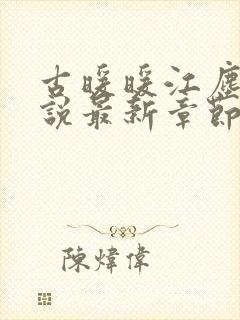 古暖暖江塵
說最新章節
陳煒偉